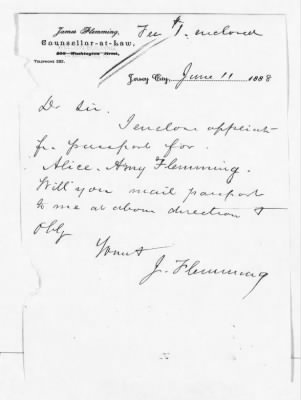 James Flemming,
Counsellor-at-Law.
Washington Street,
Fee $1. enclosed
Jersey City, June 11 1888
Dr Sir.
I enclose
for passport for.
Alice. Amy Flemming.
Will you mail passport
to me at above direction &
oblg
Yours
J. Flemming